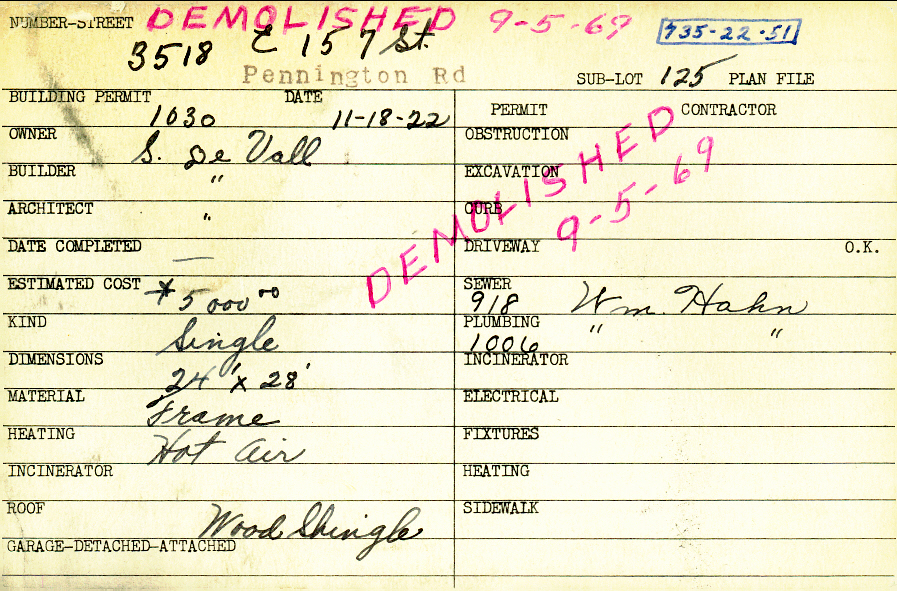 NUMBER-STREET DEMOLISHED 9-5-69 735-22-51
3518 E 157 St.
Pennington Rd SUB-LOT 125 PLAN FILE
BUILDING PERMIT DATE
1030 11-18-22
OWNER S. De Vall
BUILDER "
ARCHITECT "
DATE COMPLETED —
ESTIMATED COST $5000.00
KIND Single
DIMENSIONS 24' x 28'
MATERIAL Frame
HEATING Hot Air
INCINERATOR
ROOF Wood Shingle
GARAGE-DETACHED-ATTACHED
PERMIT CONTRACTOR
OBSTRUCTION
EXCAVATION
CURB
DRIVEWAY O.K.
SEWER
918 Wm. Hahn
PLUMBING " "
1006
INCINERATOR
ELECTRICAL
FIXTURES
HEATING
SIDEWALK
DEMOLISHED
9-5-69